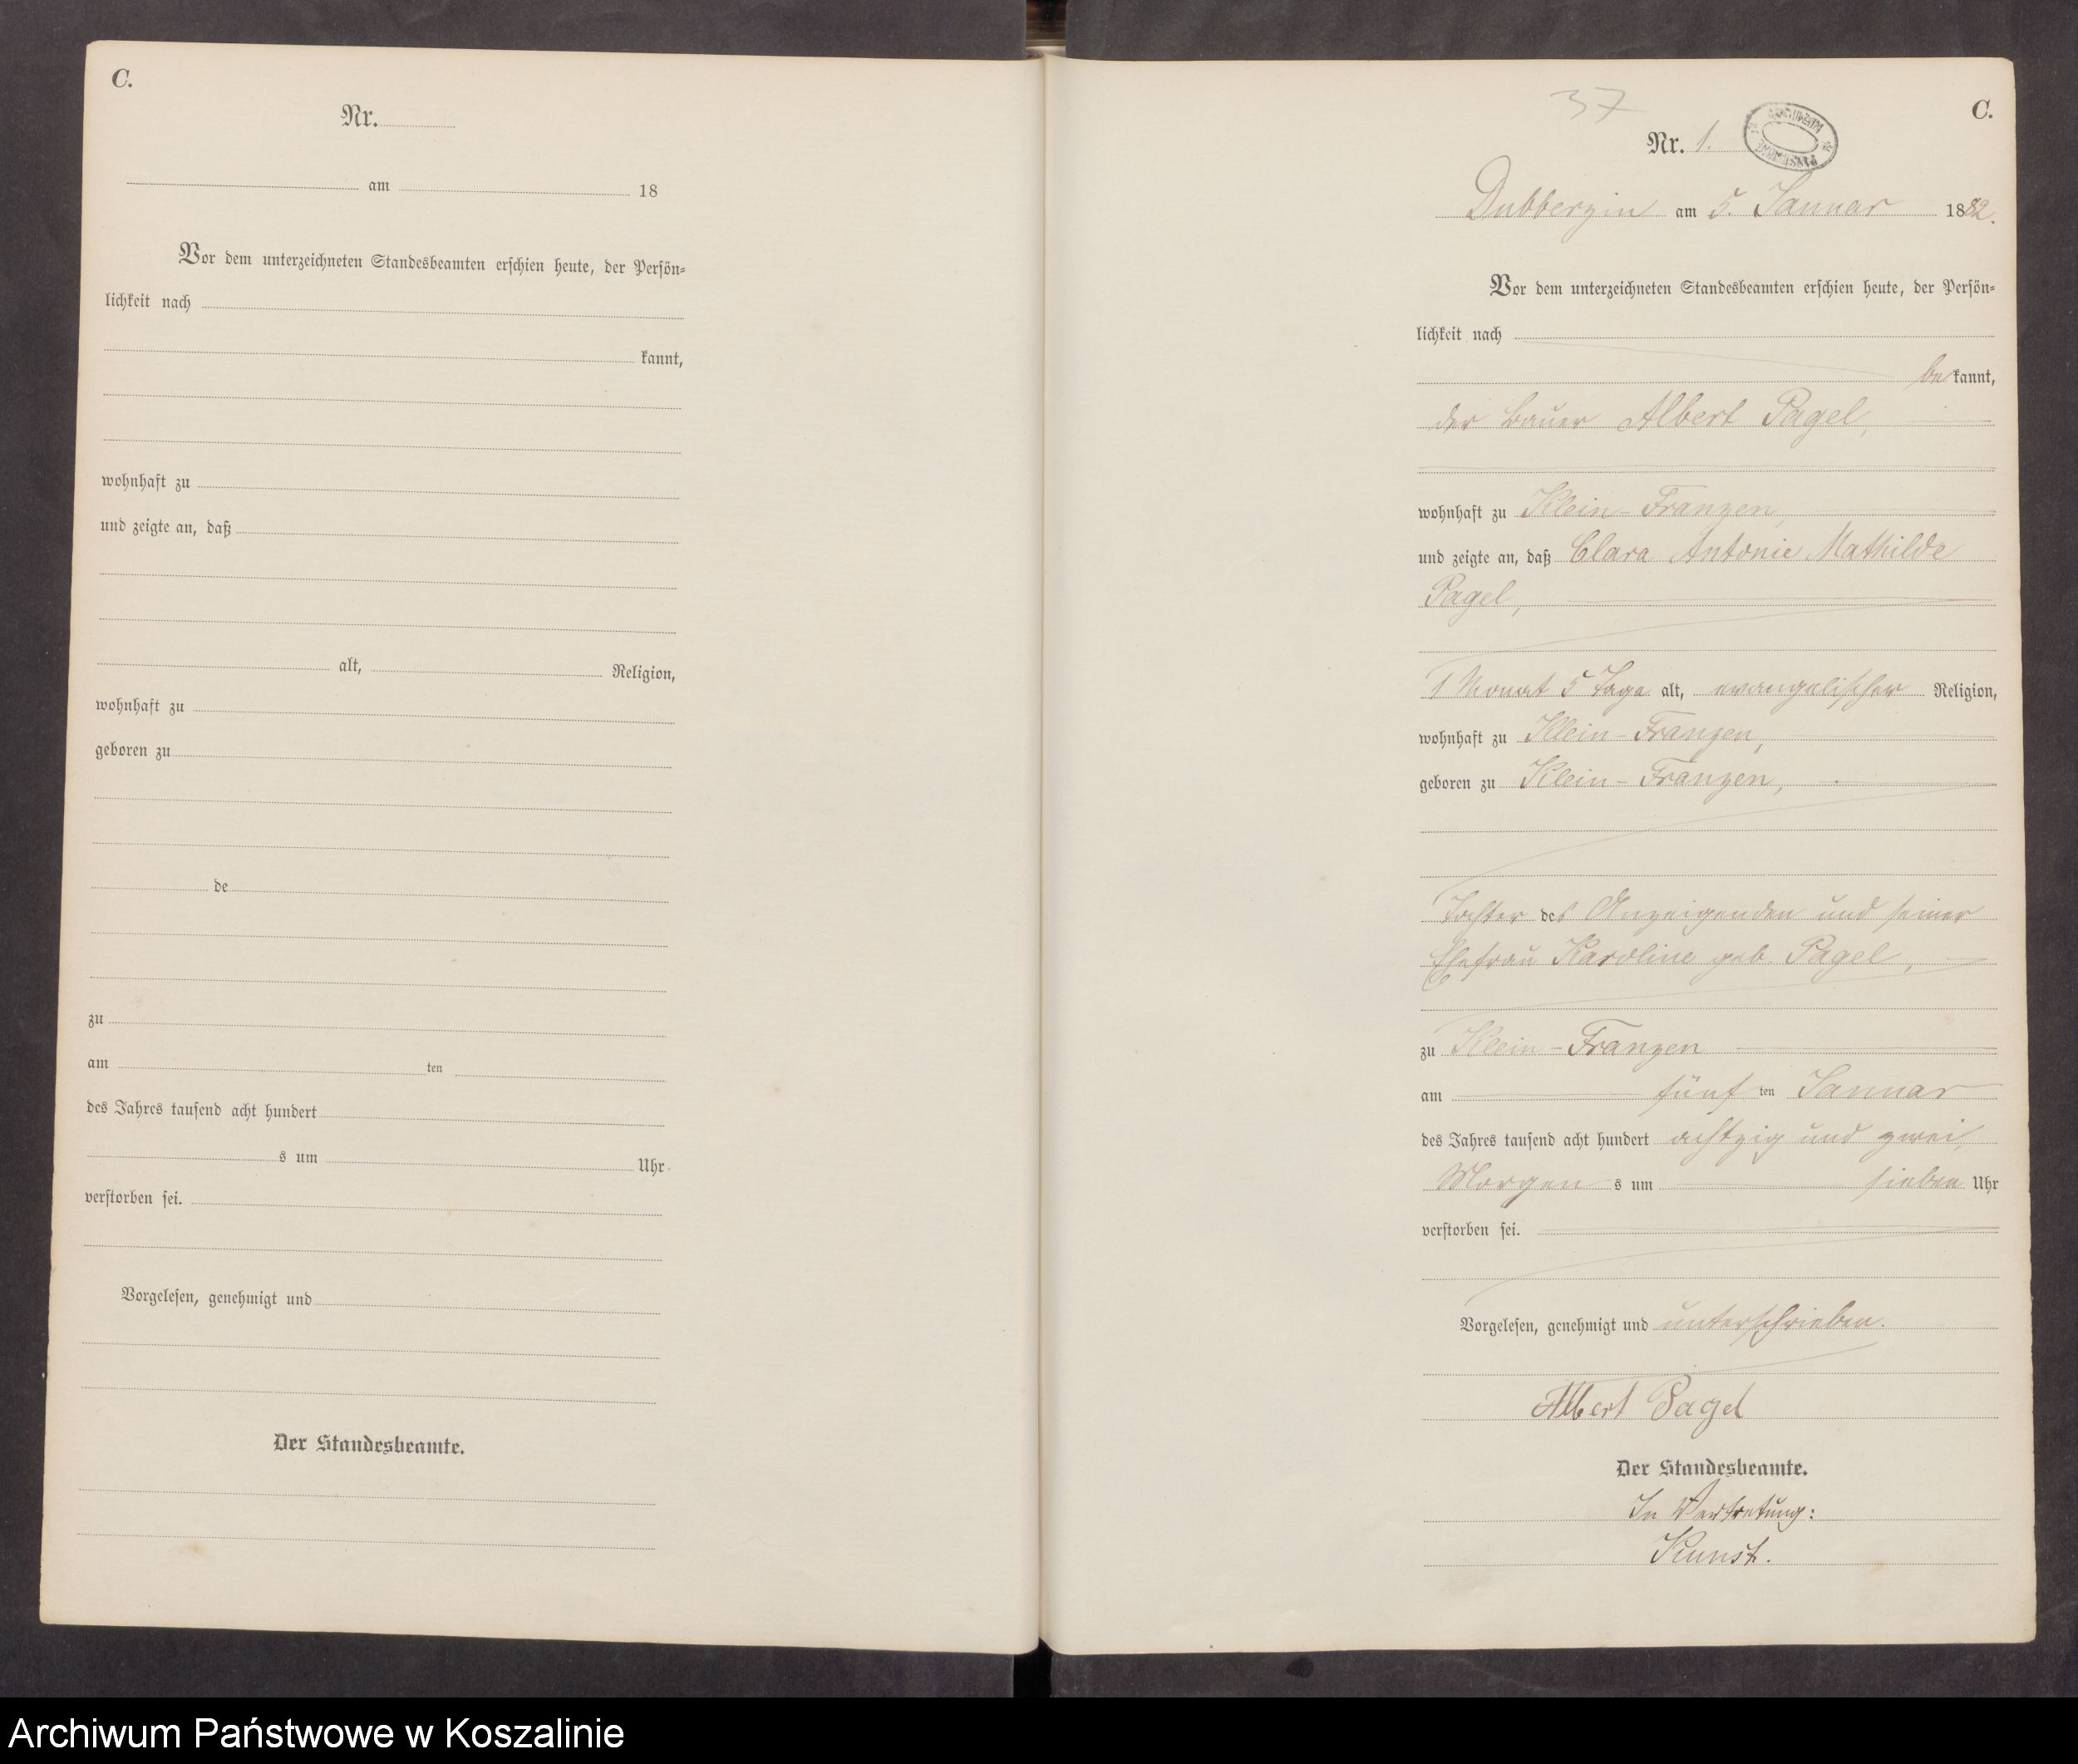 C.
Nr.
am 18
Vor dem unterzeichneten Standesbeamten erschien heute, der Persön-
lichkeit nach
kannt,
wohnhaft zu
und zeigte an, daß
alt, Religion,
wohnhaft zu
geboren zu
de
zu
am ten
des Jahres tausend acht hundert
s um Uhr
verstorben sei.
Vorgelesen, genehmigt und
Der Standesbeamte.
37
C.
Nr. 1.
Dubberzin am 5. Januar 1882.
Vor dem unterzeichneten Standesbeamten erschien heute, der Persön-
lichkeit nach
bekannt,
der Bauer Albert Pagel,
wohnhaft zu Klein-Franzen,
und zeigte an, daß Clara Antonie Mathilde
Pagel,
1 Monat 5 Tage alt, evangelischer Religion,
wohnhaft zu Klein-Franzen,
geboren zu Klein-Franzen,
Tochter des Anzeigenden und seiner
Ehefrau Karoline geb. Pagel,
zu Klein-Franzen
am fünften Januar
des Jahres tausend acht hundert achtzig und zwei,
Morgens um sieben Uhr
verstorben sei.
Vorgelesen, genehmigt und unterschrieben.
Albert Pagel
Der Standesbeamte.
In Vertretung:
Kunst.
Archiwum Państwowe w Koszalinie